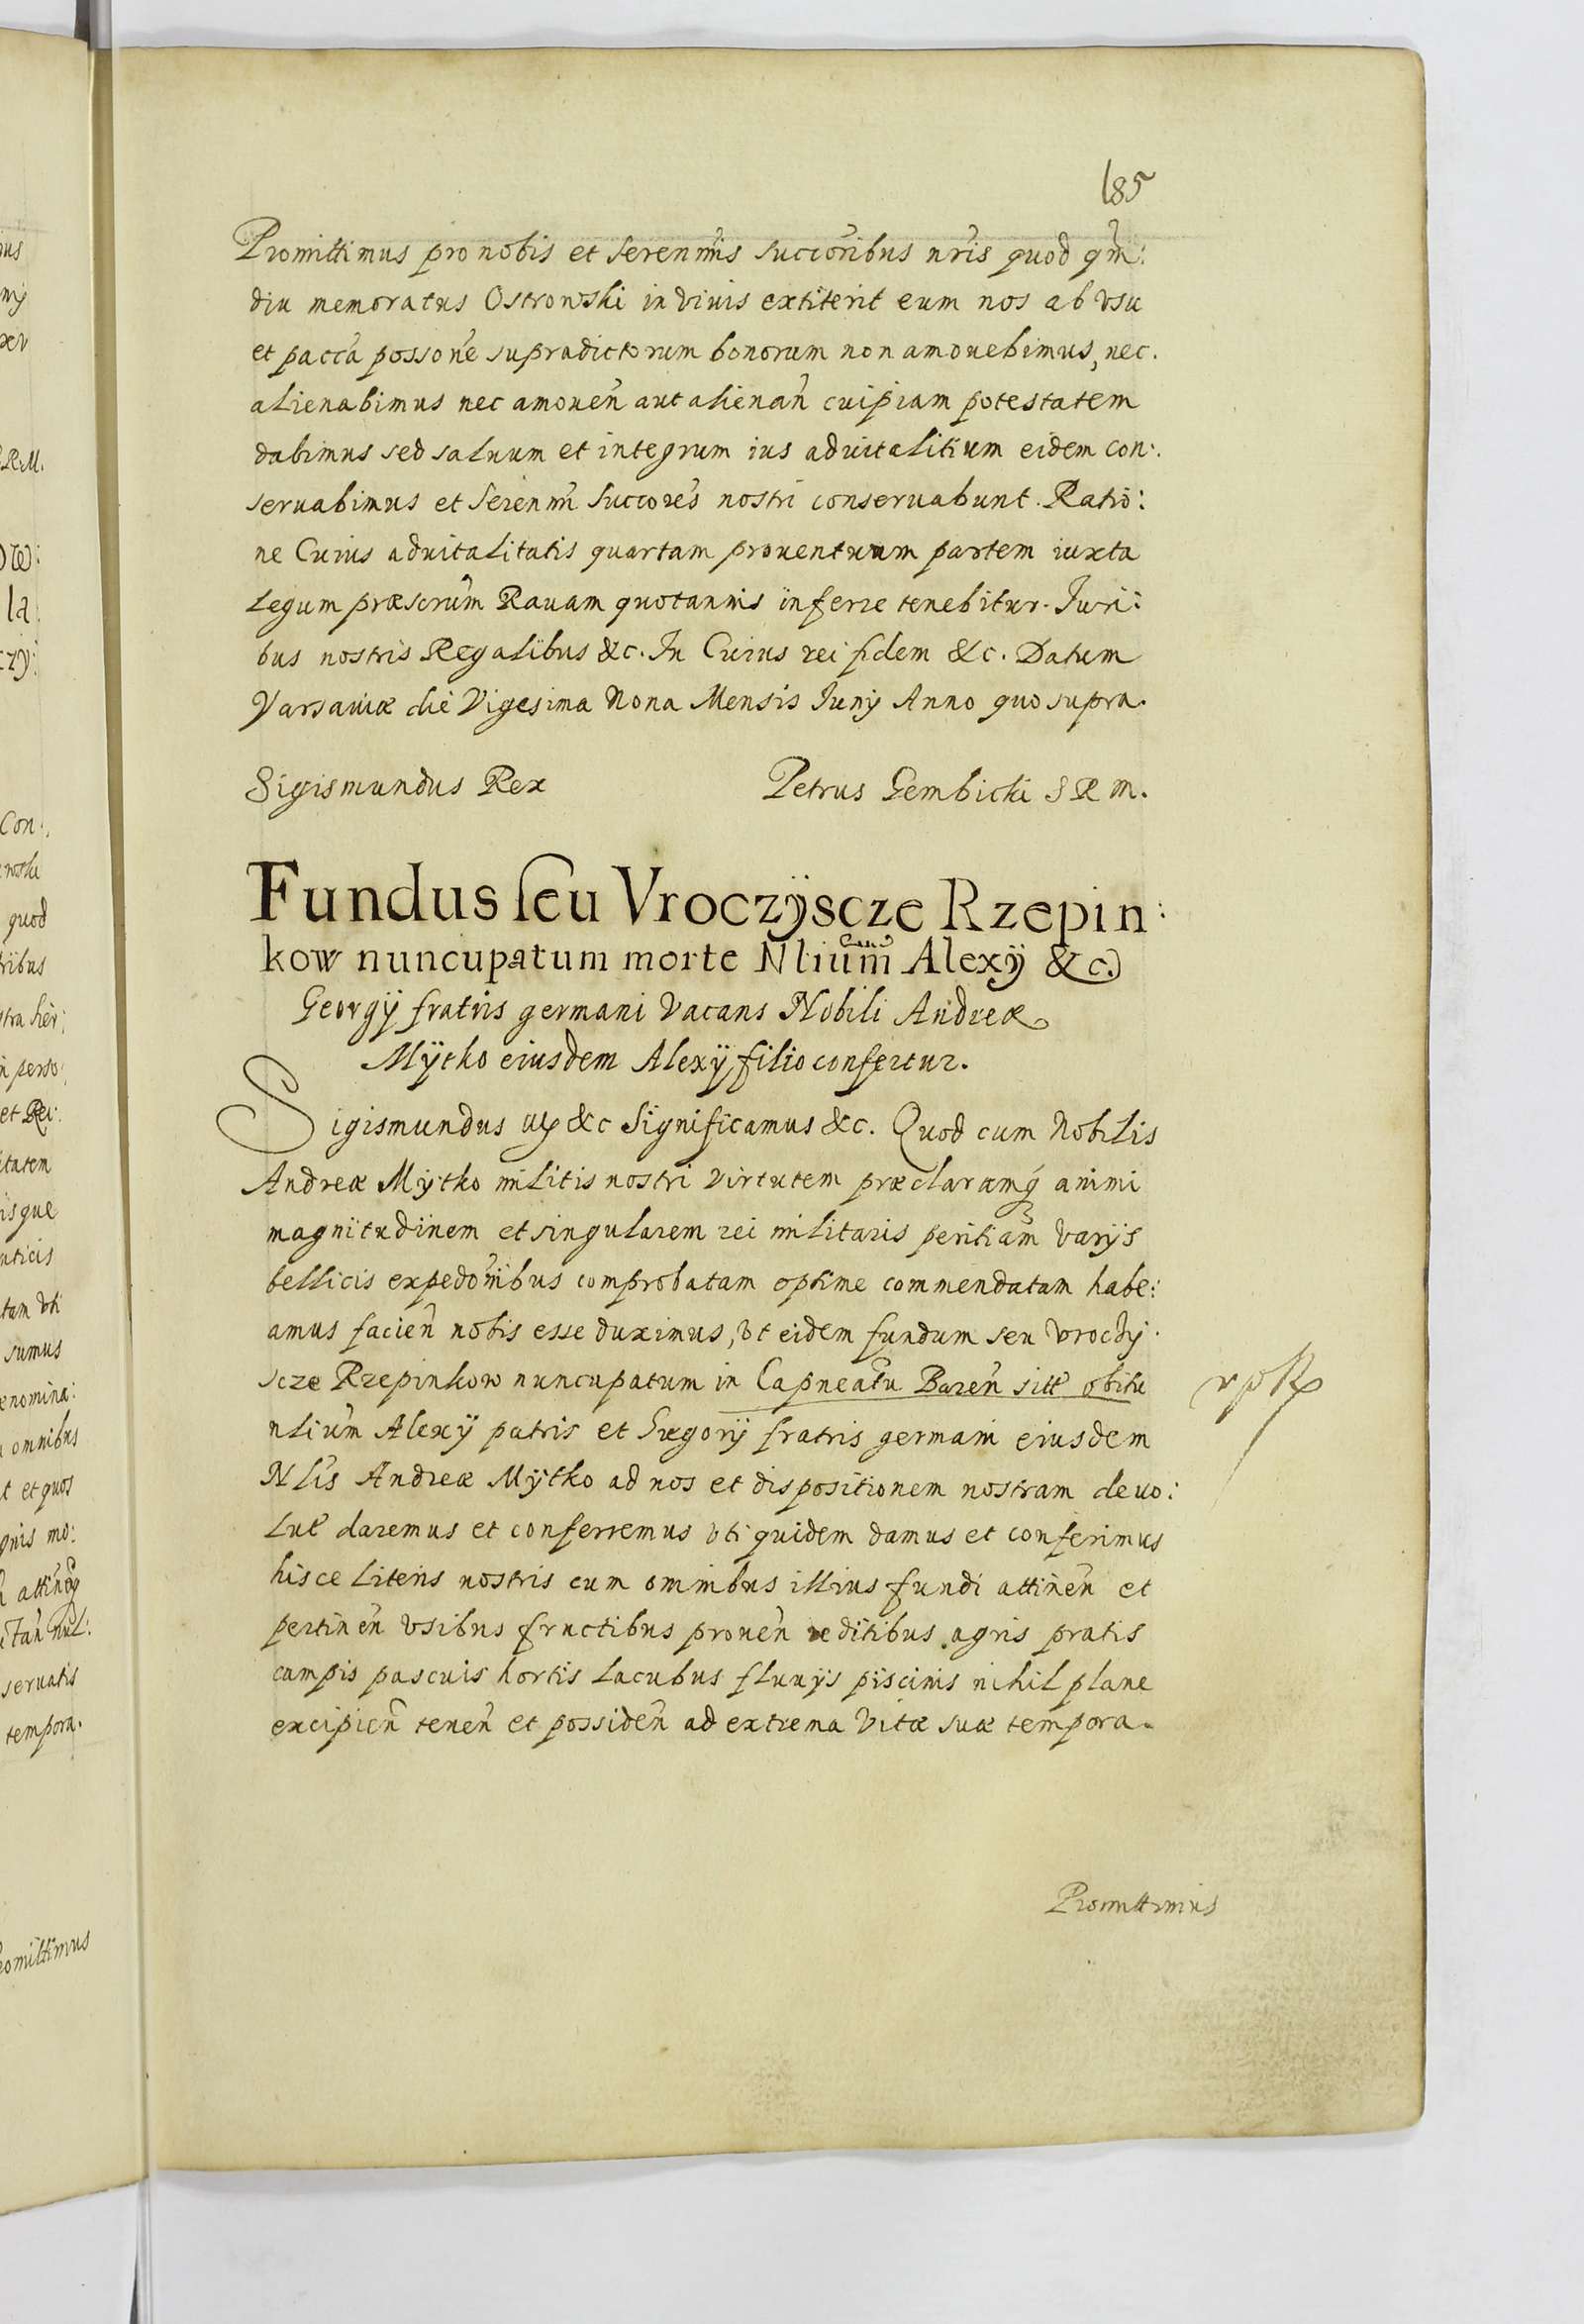 185
Promittimus pro nobis et Serenm̃is succorĩbus nr̃is quod qm̃:
diu memoratus Ostrowski in viuis extiterit eum nos ab vsu
et paccã possonẽ supradictorum bonorum non amouebimus, nec.
alienabimus nec amoueñ aut alienañ cuipiam potestatem
dabimus sed saluum et integrum ius aduitalitium eidem con:
seruabimus et Serenm̃i Succorẽs nostri conseruabunt. Ratio:
ne Cuius aduitalitatis quartam prouentuum partem iuxta
Legum præscrũm Rauam quotannis inferre tenebitur. Juri:
bus nostris Regalibus &c. In Cuius rei fidem &c. Datum
Varsauiæ die Vigesima Nona Mensis Junij Anno quo supra.
Sigismundus Rex Petrus Gembicki S R M.
Fundus seu Vroczÿscze Rzepin:
kow nuncupatum morte Nliũm Alexÿ &c.
Georgÿ fratris germani Vacans Nobili Andreæ
Mÿtko eiusdem Alexÿ filio confertur.
Sigismundus &c Significamus &c. Quod cum Nobilis
Andreæ Mÿtko militis nostri virtutem præclaramq́ animi
magnitudinem et singularem rei militaris peritiam varijs
bellicis expedõnibus comprobatam optime commendatam habe:
amus facieñ nobis esse duximus, vt eidem fundum seu vroczÿ
scze Rzepinkow nuncupatum in Capneatũ Bareñ sitt̃ obitu
nliũm Alexÿ patris et Gregorij fratris germani eiusdem
Nlis̃ Andreæ Mÿtko ad nos et dispositionem nostram deuo:
lut̃ daremus et conferremus vti quidem damus et conferimus
hisce Literis nostris cum omnibus illius fundi attineñ et
pertineñ vsibus fructibus proueñ reditibus agris pratis
campis pascuis hortis lacubus fluuijs piscinis nihil plane
excipieñ teneñ et possideñ ad extrema Vitæ suæ tempora.
Promittimus